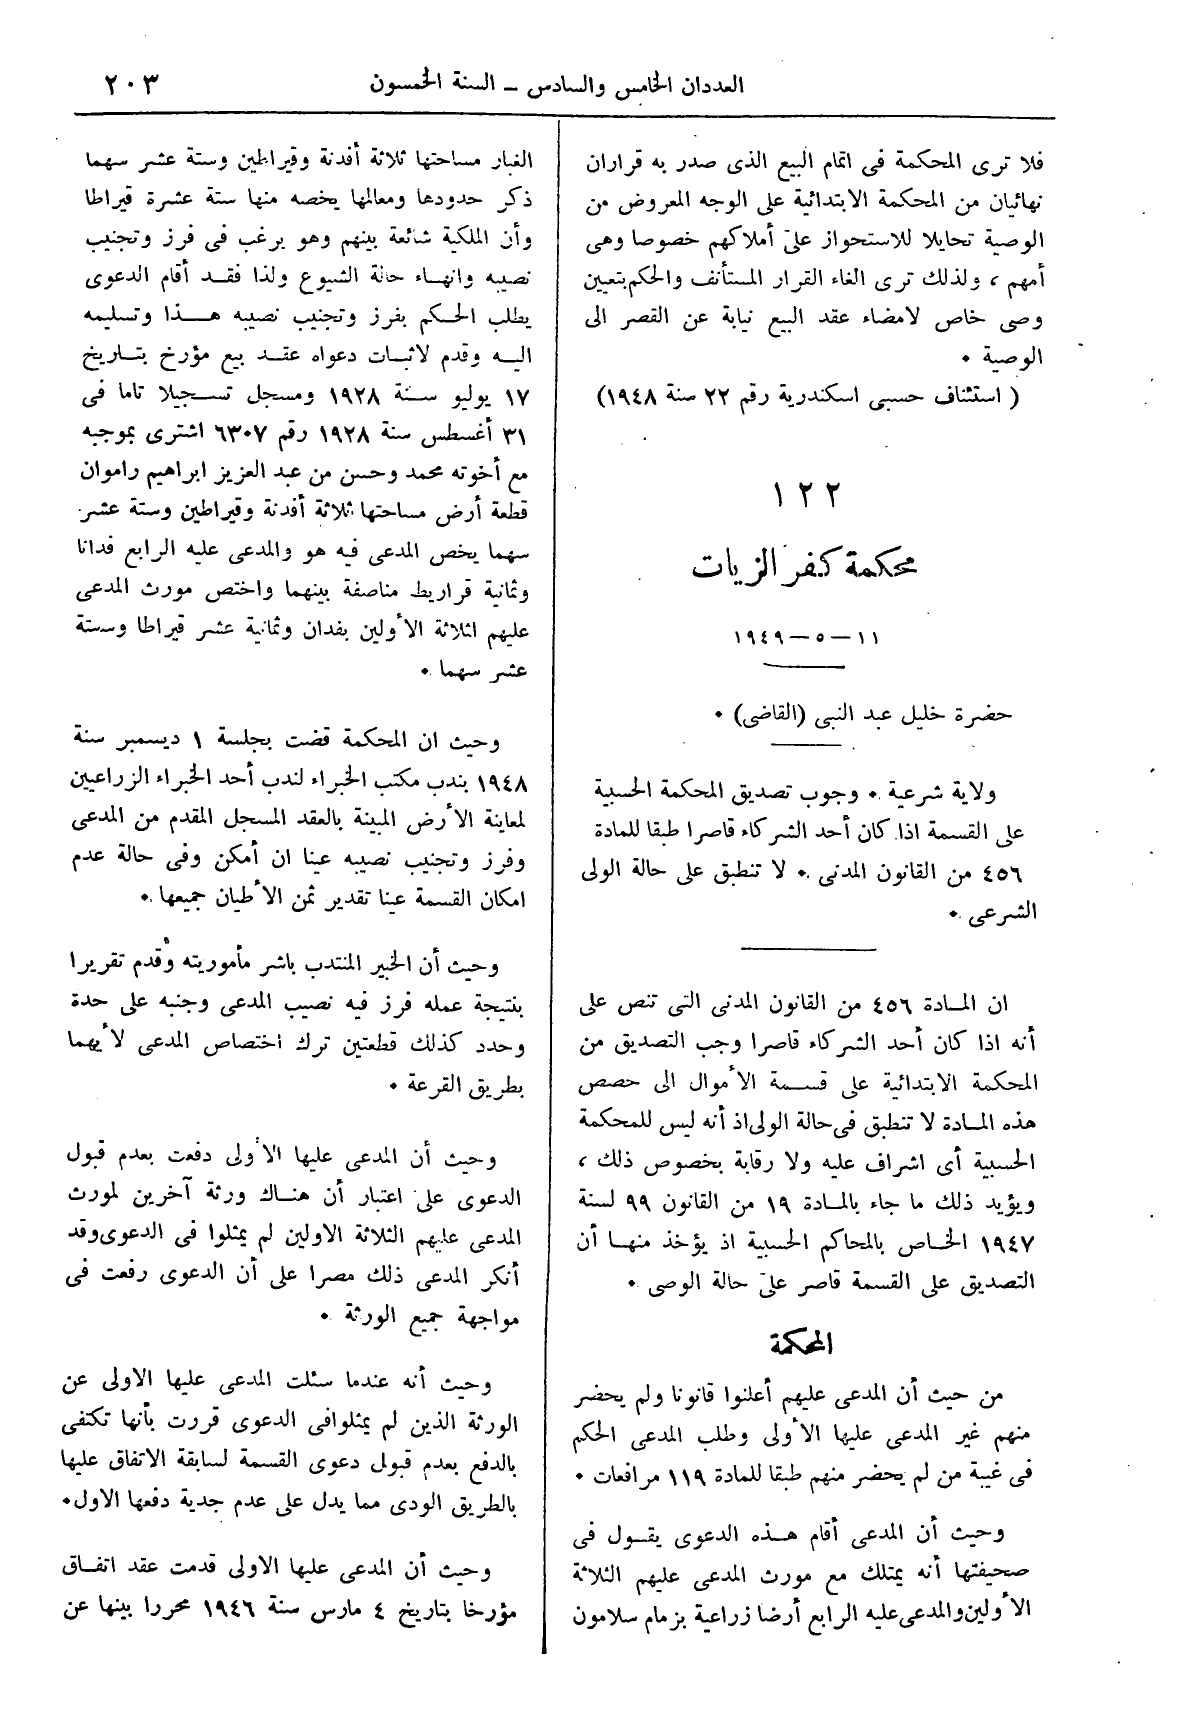 العددان الخامس والسادس – السنة الخمسون
٢٠٣
فلا ترى المحكمة فى اتمام البيع الذى صدر به قراران
نهائيان من المحكمة الابتدائية على الوجه المعروض من
الوصية تحايلا للاستحواز على أملاكهم خصوصا وهى
أمهم ، ولذلك ترى الغاء القرار المستأنف والحكم بتعيين
وصى خاص لامضاء عقد البيع نيابة عن القصر الى
الوصية .
( استئناف حسبى اسكندرية رقم ٢٢ سنة ١٩٤٨)
١٢٢
محكمة كفر الزيات
١١ – ٥ – ١٩٤٩
حضرة خليل عبد النبى (القاضى) .
ولاية شرعية . وجوب تصديق المحكمة الحسبية
على القسمة اذا كان أحد الشركاء قاصرا طبقا للمادة
٤٥٦ من القانون المدنى . لا تنطبق على حالة الولى
الشرعى .
ان المادة ٤٥٦ من القانون المدنى التى تنص على
أنه اذا كان أحد الشركاء قاصرا وجب التصديق من
المحكمة الابتدائية على قسمة الأموال الى حصص
هذه المادة لا تنطبق فى حالة الولى اذ أنه ليس للمحكمة
الحسبية أى اشراف عليه ولا رقابة بخصوص ذلك ،
ويؤيد ذلك ما جاء بالمادة ١٩ من القانون ٩٩ لسنة
١٩٤٧ الخاص بالمحاكم الحسبية اذ يؤخذ منها أن
التصديق على القسمة قاصر على حالة الوصى .
المحكمة
من حيث أن المدعى عليهم أعلنوا قانونا ولم يحضر
منهم غير المدعى عليها الأولى وطلب المدعى الحكم
فى غيبة من لم يحضر منهم طبقا للمادة ١١٩ مرافعات .
وحيث أن المدعى أقام هذه الدعوى يقول فى
صحيفتها أنه يمتلك مع مورث المدعى عليهم الثلاثة
الأولين والمدعى عليه الرابع أرضا زراعية بزمام سلامون
الغبار مساحتها ثلاثة أفدنة وقيراطين وستة عشر سهما
ذكر حدودها ومعالمها يخصه منها ستة عشرة قيراطا
وأن الملكية شائعة بينهم وهو يرغب فى فرز وتجنيب
نصيبه وانهاء حالة الشيوع ولذا فقد أقام الدعوى
يطلب الحكم بفرز وتجنيب نصيبه هذا وتسليمه
اليه وقدم لاثبات دعواه عقد بيع مؤرخ بتاريخ
١٧ يوليو سنة ١٩٢٨ ومسجل تسجيلا تاما فى
٣١ أغسطس سنة ١٩٢٨ رقم ٦٣٠٧ اشترى بموجبه
مع أخوته محمد وحسن من عبد العزيز ابراهيم راموان
قطعة أرض مساحتها ثلاثة أفدنة وقيراطين وستة عشر
سهما يخص المدعى فيه هو والمدعى عليه الرابع فدانا
وثمانية قراريط مناصفة بينهما واختص مورث المدعى
عليهم الثلاثة الأولين بفدان وثمانية عشر قيراطا وستة
عشر سهما .
وحيث ان المحكمة قضت بجلسة ١ ديسمبر سنة
١٩٤٨ بندب مكتب الخبراء لندب أحد الخبراء الزراعيين
لمعاينة الأرض المبينة بالعقد المسجل المقدم من المدعى
وفرز وتجنيب نصيبه عينا ان أمكن وفى حالة عدم
امكان القسمة عينا تقدير ثمن الأطيان جميعها .
وحيث أن الخبير المنتدب باشر مأموريته وقدم تقريرا
بنتيجة عمله فرز فيه نصيب المدعى وجنبه على حدة
وحدد كذلك قطعتين ترك اختصاص المدعى لأيهما
بطريق القرعة .
وحيث أن المدعى عليها الأولى دفعت بعدم قبول
الدعوى على اعتبار أن هناك ورثة آخرين لمورث
المدعى عليهم الثلاثة الاولين لم يمثلوا فى الدعوى وقد
أنكر المدعى ذلك مصرا على أن الدعوى رفعت فى
مواجهة جميع الورثة .
وحيث أنه عندما سئلت المدعى عليها الاولى عن
الورثة الذين لم يمثلوا فى الدعوى قررت بأنها تكتفى
بالدفع بعدم قبول دعوى القسمة لسابقة الاتفاق عليها
بالطريق الودى مما يدل على عدم جدية دفعها الاول .
وحيث أن المدعى عليها الاولى قدمت عقد اتفاق
مؤرخا بتاريخ ٤ مارس سنة ١٩٤٦ محررا بينها عن